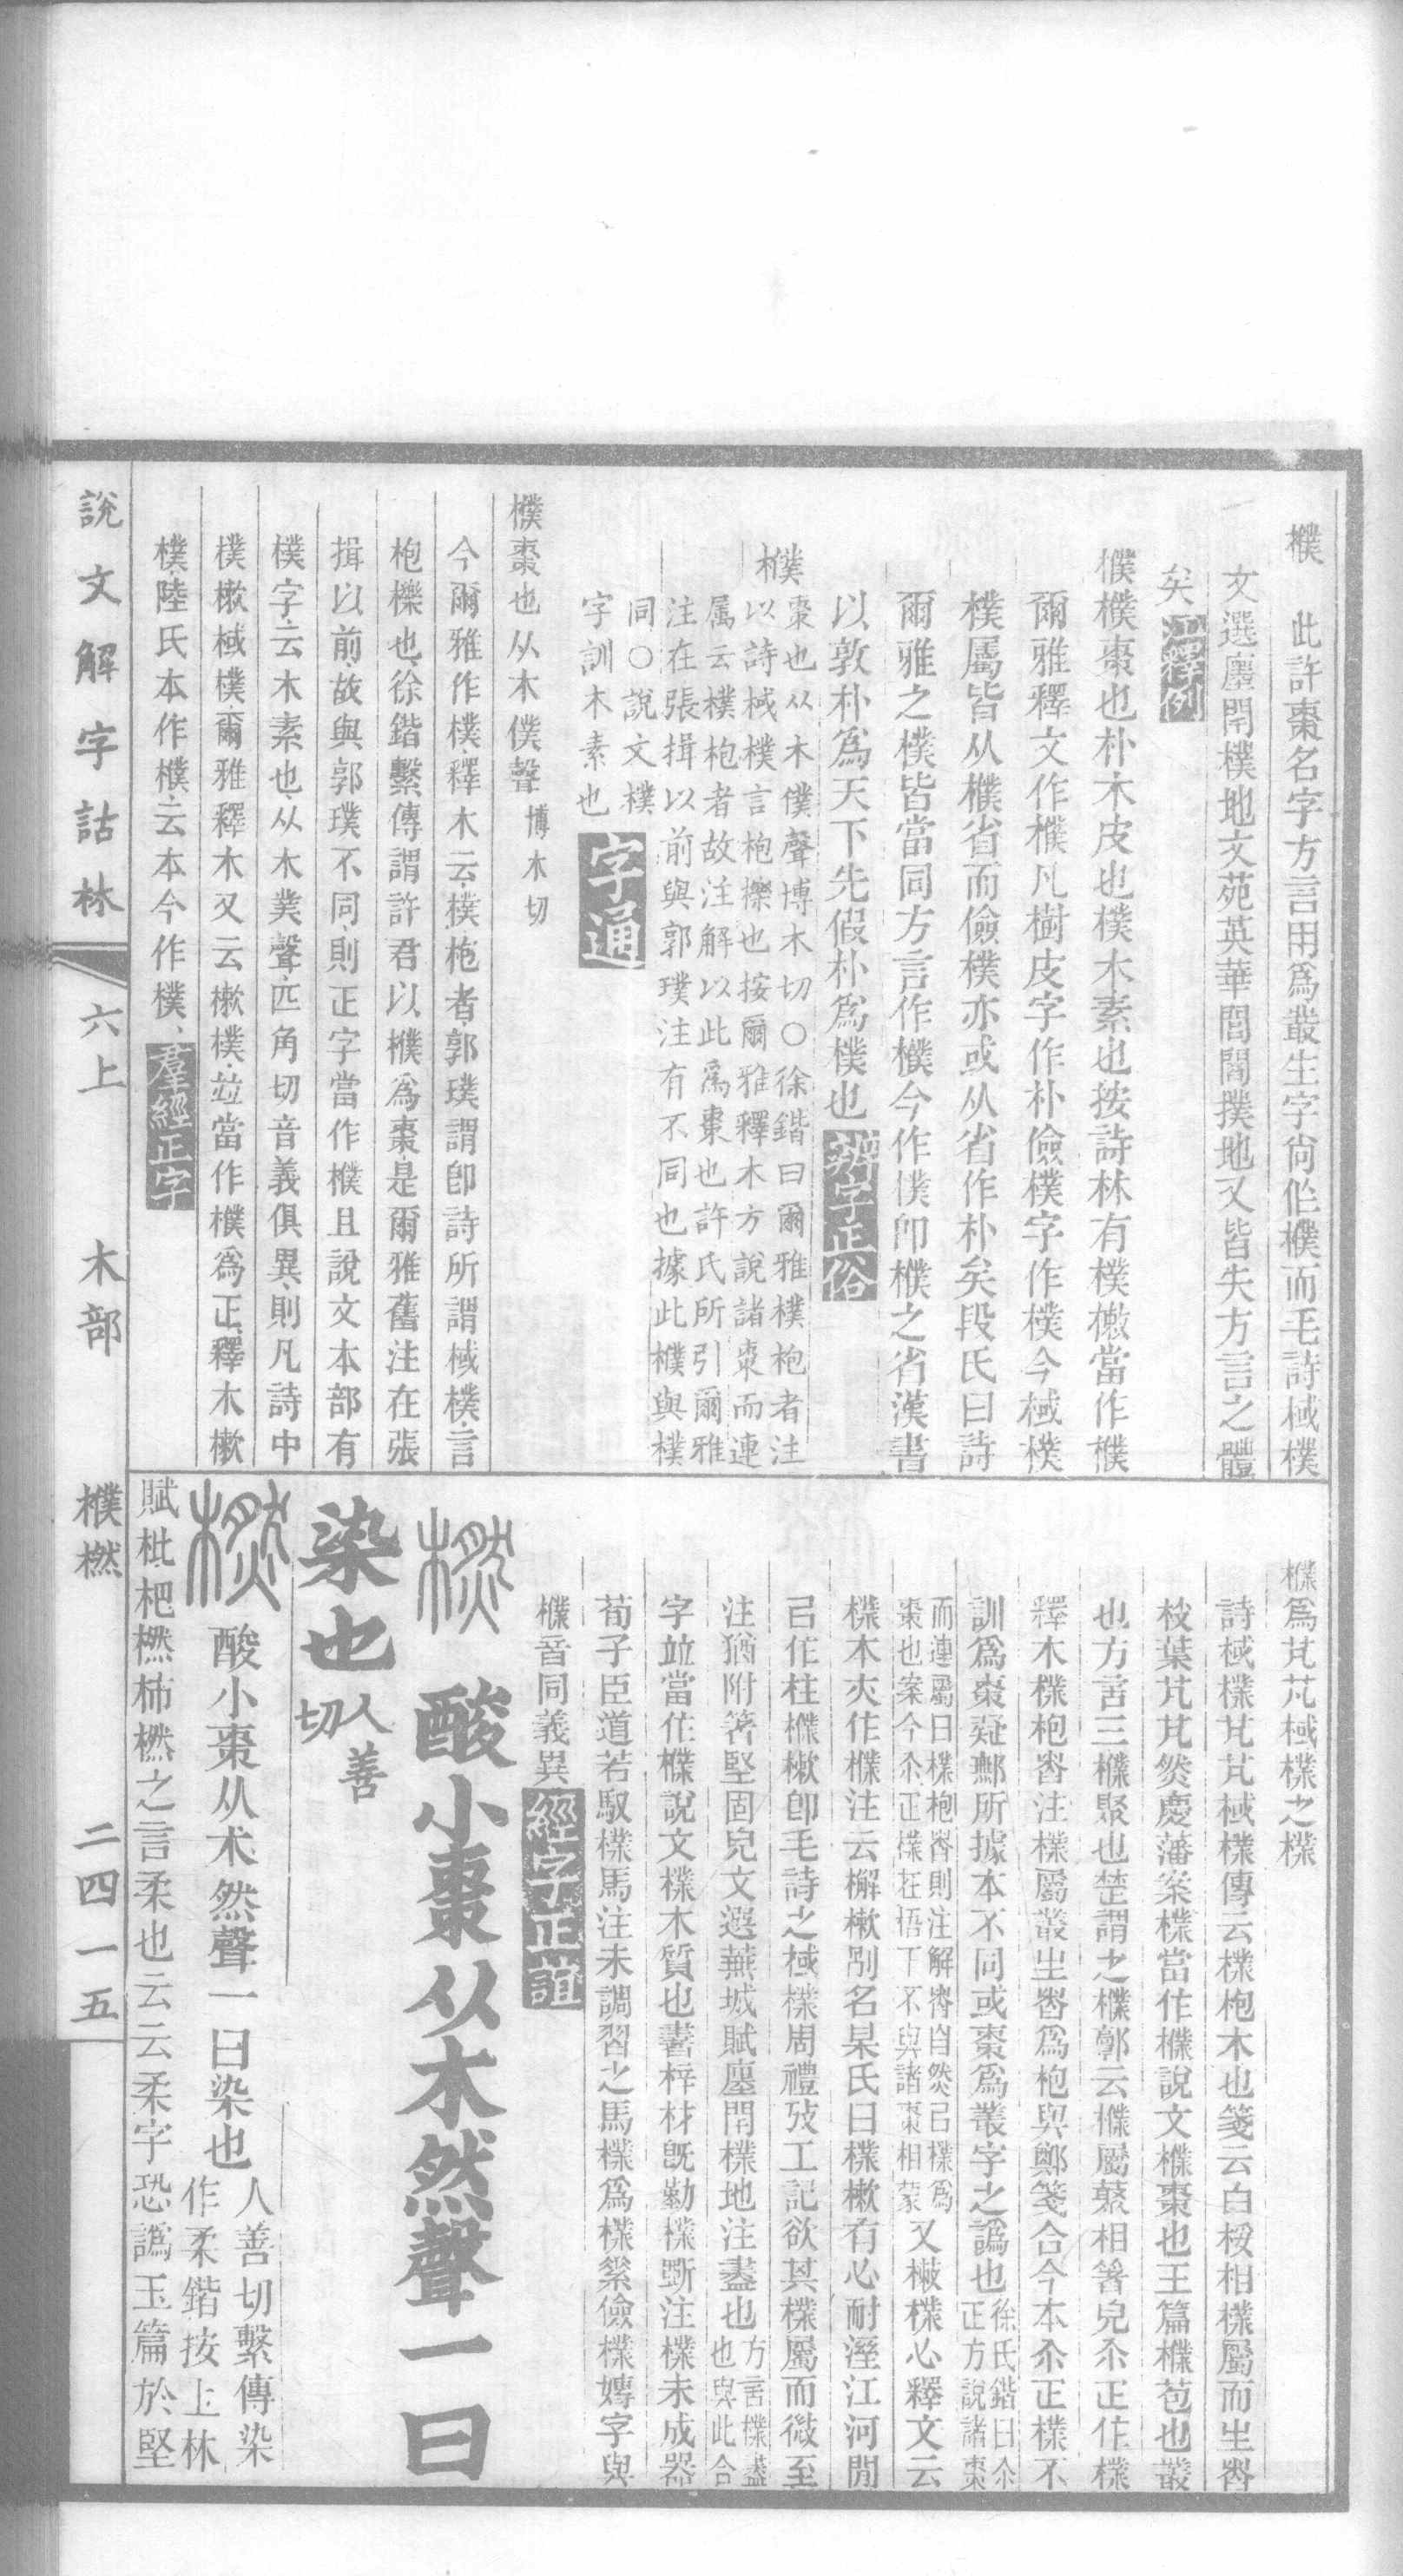 樸　此許棗名字方言用爲叢生字尙作樸而毛詩棫樸
文選廛閈樸地文苑英華閭閻撲地又皆失方言之體
矣江釋例
樸樸棗也朴木皮也樸木素也按詩林有樸樕當作樸
爾雅釋文作樸凡樹皮字作朴儉樸字作樸今棫樸
樸屬皆从樸省而儉樸亦或从省作朴矣段氏曰詩
爾雅之樸皆當同方言作樸今作樸卽樸之省漢書
以敦朴爲天下先假朴爲樸也辨字正俗
樸棗也从木僕聲博木切○徐鍇曰爾雅樸枹者注
以詩棫樸言枹櫟也按爾雅釋木方說諸棗而連
属云樸枹者故注解以此爲棗也許氏所引爾雅
注在張揖以前與郭璞注有不同也據此樸與樸
同○說文樸
字訓木素也字通
樸棗也从木僕聲博木切
今爾雅作樸、釋木云、樸、枹者、郭璞謂卽詩所謂棫樸、言
枹櫟也、徐鍇繫傳謂許君以樸爲棗是爾雅舊注在張
揖以前、故與郭璞不同、則正字當作樸且說文本部有
樸字、云木素也、从木菐聲、匹角切音義俱異、則凡詩中
樸樕棫樸、爾雅釋木又云樕樸、竝當作樸爲正、釋木樕
樸、陸氏本作樸、云本今作樸、羣經正字
樸爲芃芃棫樸之樸
詩棫樸芃芃棫樸傳云樸枹木也箋云白桵相樸屬而生者
枝葉芃芃然慶藩案樸當作樸說文樸棗也玉篇樸苞也叢
也方言三樸聚也楚謂之樸郭云樸屬藂相箸皃尒正作樸
釋木樸枹者注樸屬叢生者爲枹與鄭箋合今本尒正樸不
訓爲棗疑鄦所據本不同或棗爲叢字之譌也徐氏鍇曰尒
正方說諸棗
而連屬曰樸枹者則注解者自然㠯樸爲
棗也案今尒正樸在梧下不與諸棗相蒙又樕樸心釋文云
樸本夾作樸注云槲樕別名某氏曰樸樕有心耐溼江河閒
㠯作柱樸樕卽毛詩之棫樸周禮攷工記欲其樸屬而微至
注猶附箸堅固皃文選蕪城賦廛閈樸地注盡也方言樸盡
也與此合
字竝當作樸說文樸木質也書梓材旣勤樸斲注樸未成器
荀子臣道若馭樸馬注未調習之馬樸爲樸絫儉樸嫥字與
樸音同義異經字正誼
橪　酸小棗从木然聲一曰
染也人善切
橪酸小棗从木然聲一曰染也人善切繫傳染
作柔鍇按上林
賦枇杷橪柿橪之言柔也云云柔字恐譌玉篇於堅
說文解字詁林　六上　木部　樸橪　二四一五